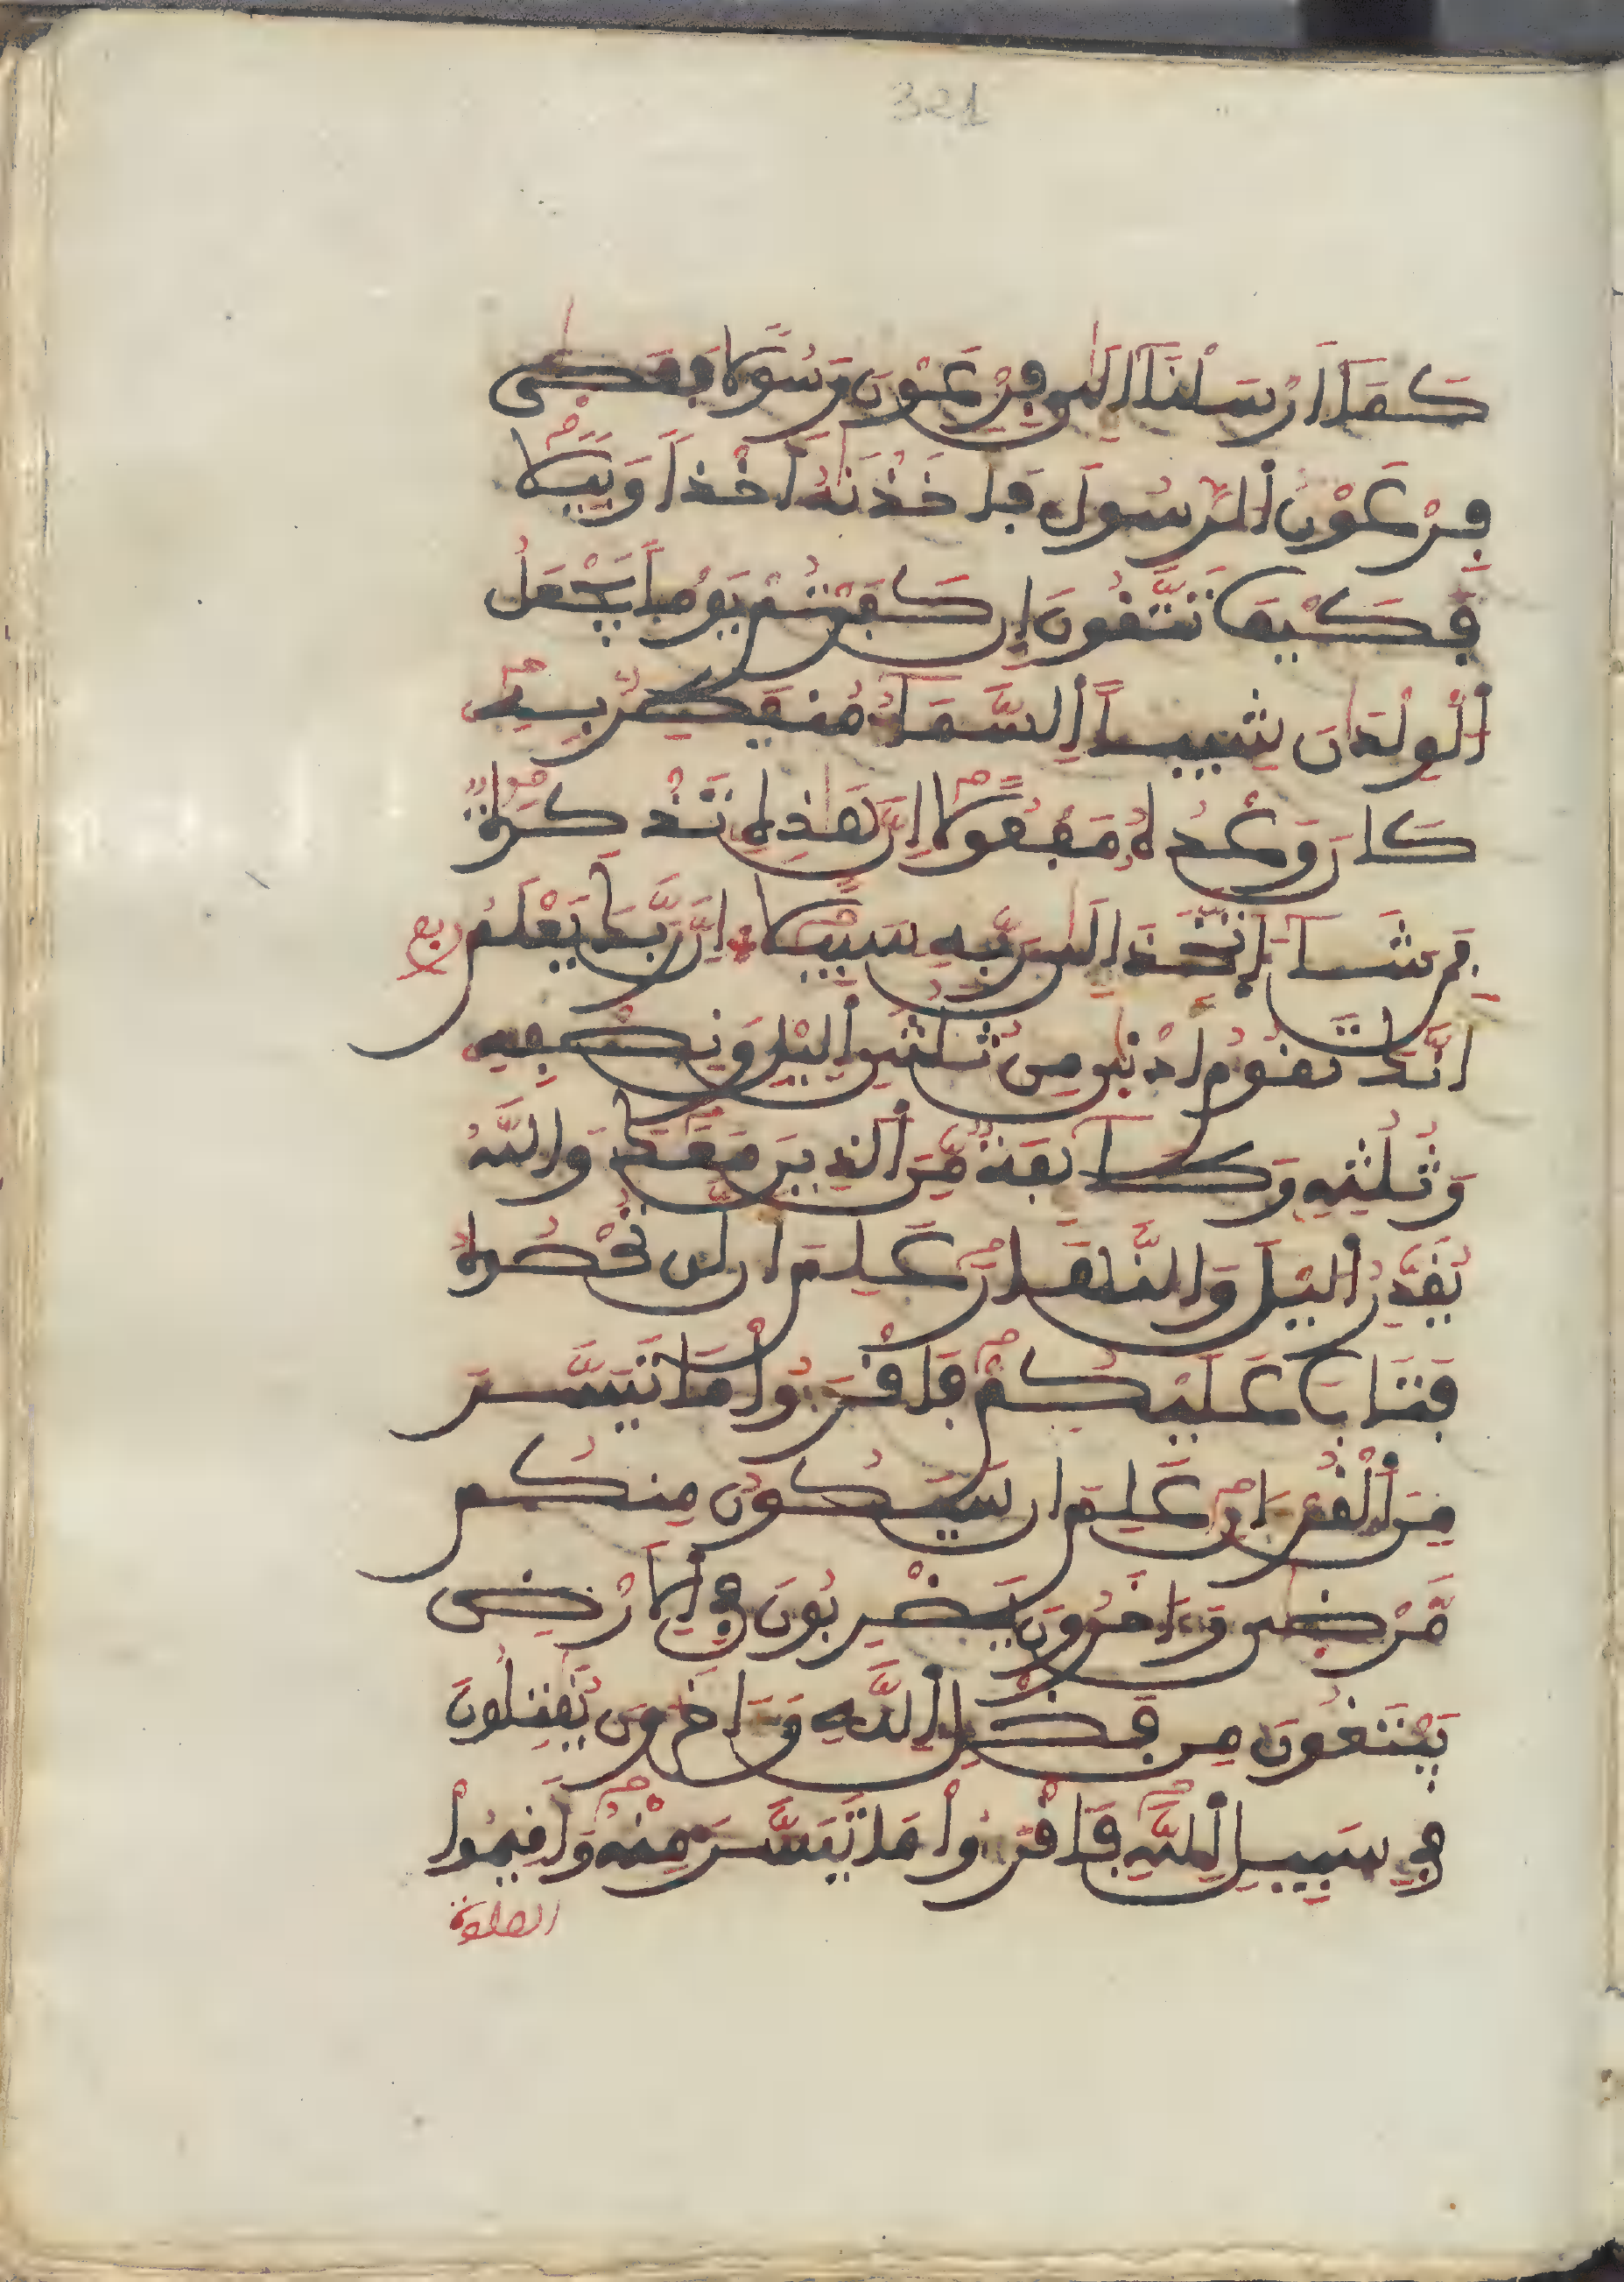 321
كَمَا أَرْسَلْنَا إِلَىٰ فِرْعَوْنَ رَسُولًا فَعَصَىٰ
فِرْعَوْنُ الرَّسُولَ فَأَخَذْنَٰهُ أَخْذًا وَبِيلًا
فَكَيْفَ تَتَّقُونَ إِن كَفَرْتُمْ يَوْمًا يَجْعَلُ
الْوِلْدَٰنَ شِيبًا السَّمَاءُ مُنفَطِرٌ بِهِ
كَانَ وَعْدُهُ مَفْعُولًا إِنَّ هَٰذِهِ تَذْكِرَةٌ
فَمَن شَاءَ اتَّخَذَ إِلَىٰ رَبِّهِ سَبِيلًا إِنَّ رَبَّكَ يَعْلَمُ
ربع
أَنَّكَ تَقُومُ أَدْنَىٰ مِن ثُلُثَيِ الَّيْلِ وَنِصْفِهِ
وَثُلُثِهِ وَطَائِفَةٌ مِّنَ الَّذِينَ مَعَكَ وَاللَّهُ
يُقَدِّرُ الَّيْلَ وَالنَّهَارَ عَلِمَ أَن لَّن تُحْصُوهُ
فَتَابَ عَلَيْكُمْ فَاقْرَءُوا مَا تَيَسَّرَ
مِنَ الْقُرْءَانِ عَلِمَ أَن سَيَكُونُ مِنكُم
مَّرْضَىٰ وَءَاخَرُونَ يَضْرِبُونَ فِي الْأَرْضِ
يَبْتَغُونَ مِن فَضْلِ اللَّهِ وَءَاخَرُونَ يُقَٰتِلُونَ
فِي سَبِيلِ اللَّهِ فَاقْرَءُوا مَا تَيَسَّرَ مِنْهُ وَأَقِيمُوا
الصلوة